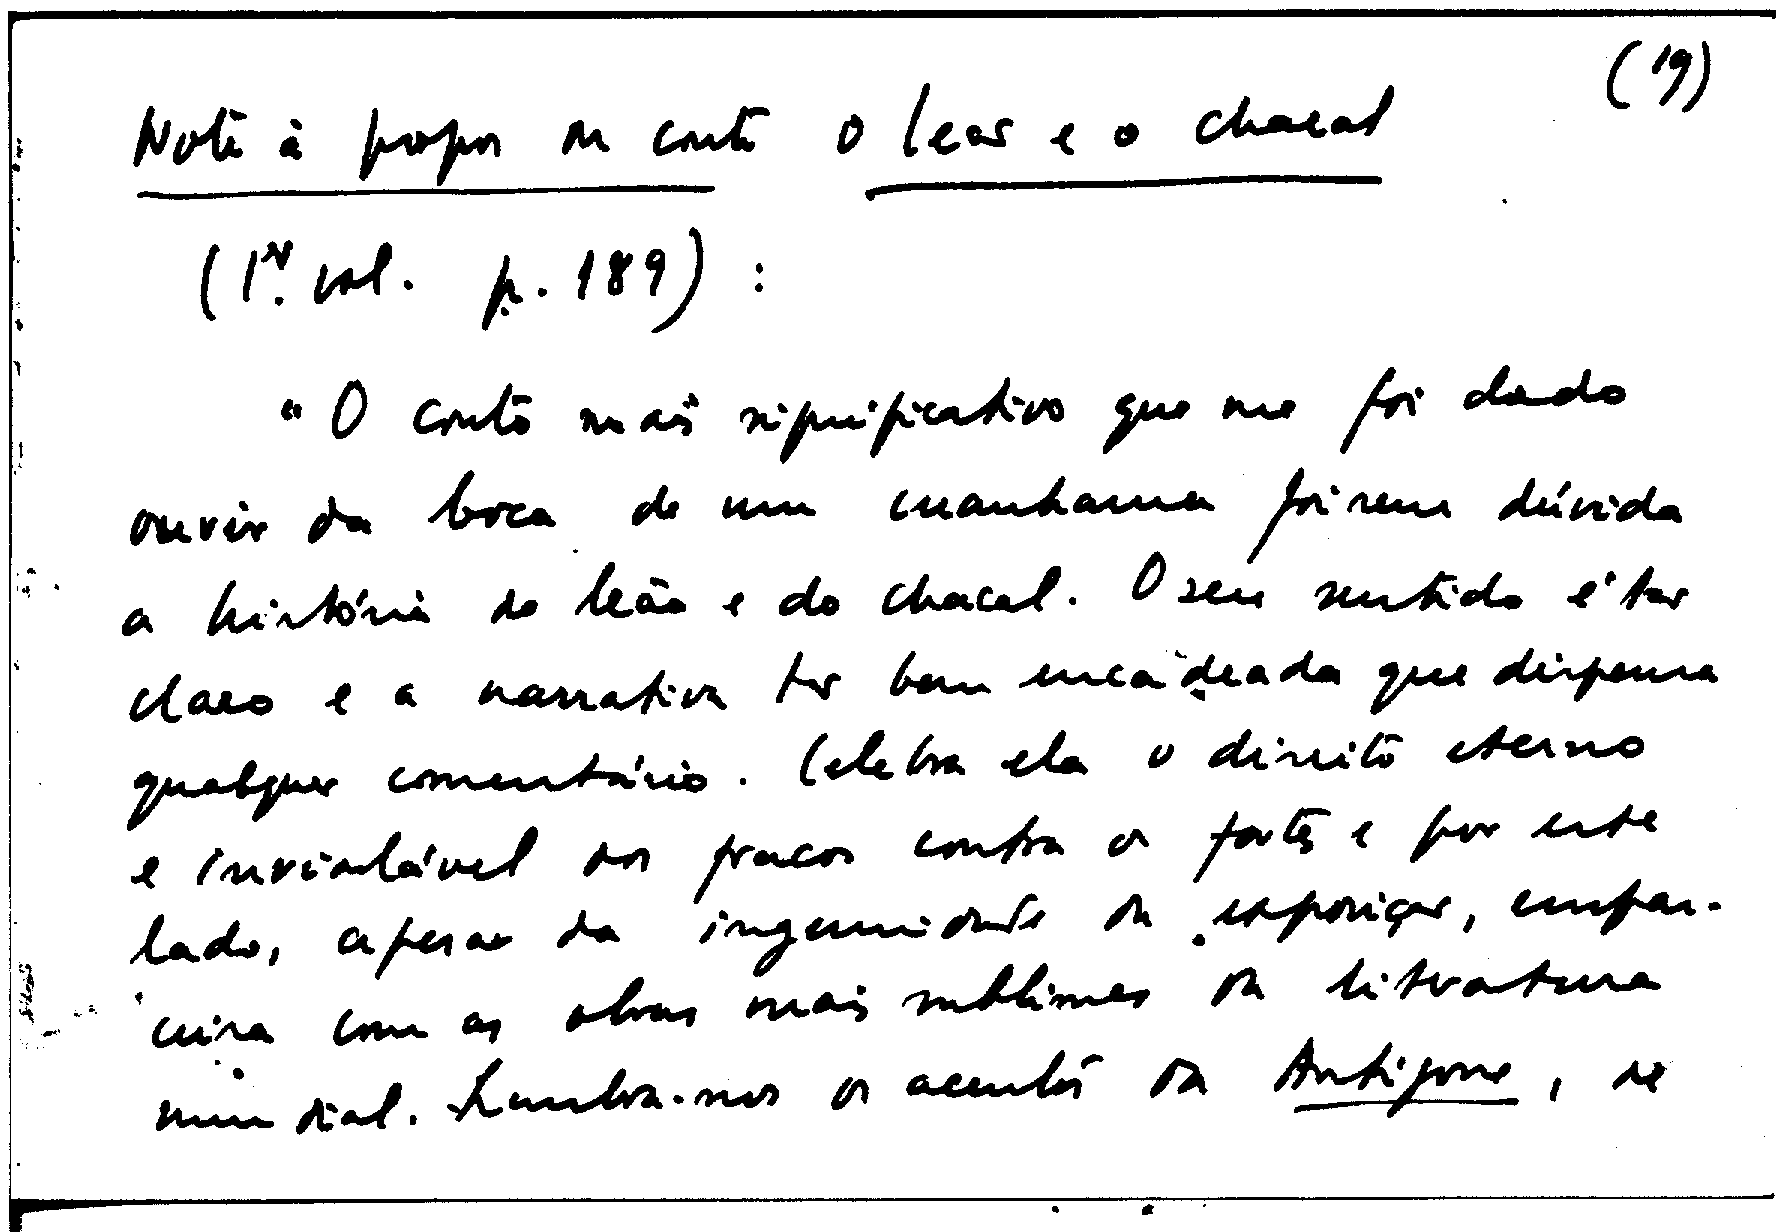 (19)
Note à propos du conte O leão e o chacal
(1º vol. p. 189) :
"O conto mais significativo que me foi dado
ouvir da boca de um cuanhama foi sem dúvida
a história do leão e do chacal. O seu sentido é tão
claro e a narrativa tão bem encadeada que dispensa
qualquer comentário. Celebra ela o direito eterno
e inviolável dos fracos contra os fortes e por este
lado, apesar da ingenuidade da exposição, empar-
ceira com as obras mais sublimes da literatura
mundial. Lembra-nos os acentos da Antigone, de